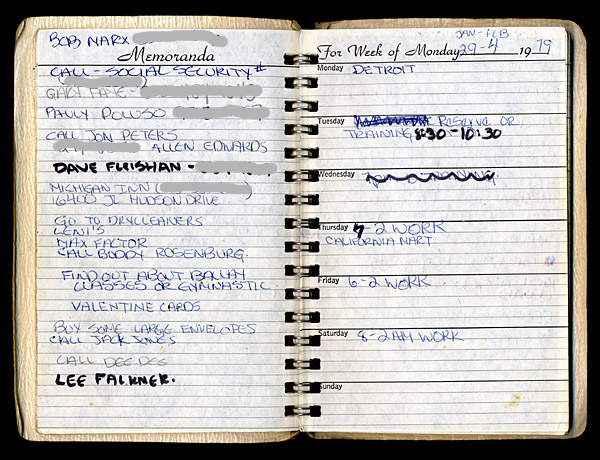 BOB MARX
Memoranda
CALL - SOCIAL SECURITY #
GARY FAYE -
PAULY POLUSO
CALL JON PETERS
ALLEN EDWARDS
DAVE FLEISHAN -
MICHIGAN INN (
16400 JL HUDSON DRIVE
GO TO DRYCLEANERS
LENI'S
MAX FACTOR
CALL BUDDY ROSENBURG.
FIND OUT ABOUT BALLAY
CLASSES OR GYMNASTIC
VALENTINE CARDS
BUY SOME LARGE ENVELOPES
CALL JACK JONES
CALL DEE DEE
LEE FALKNER.
JAN - FEB
For Week of Monday 29-4 1979
Monday DETROIT
Tuesday RESERVE OR
TRAINING 8:30-10:30
Wednesday
Thursday -2 WORK
CALIFORNIA MART
Friday 6-2 WORK
Saturday 8-2AM WORK
Sunday